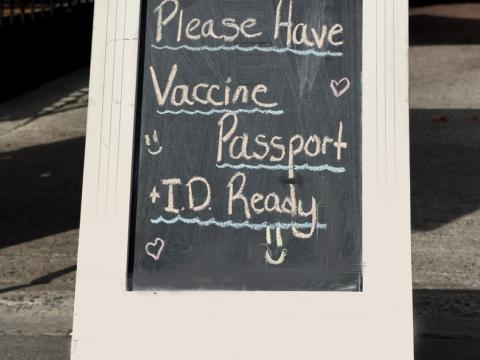 Please Have
Vaccine
Passport
+I.D. Ready